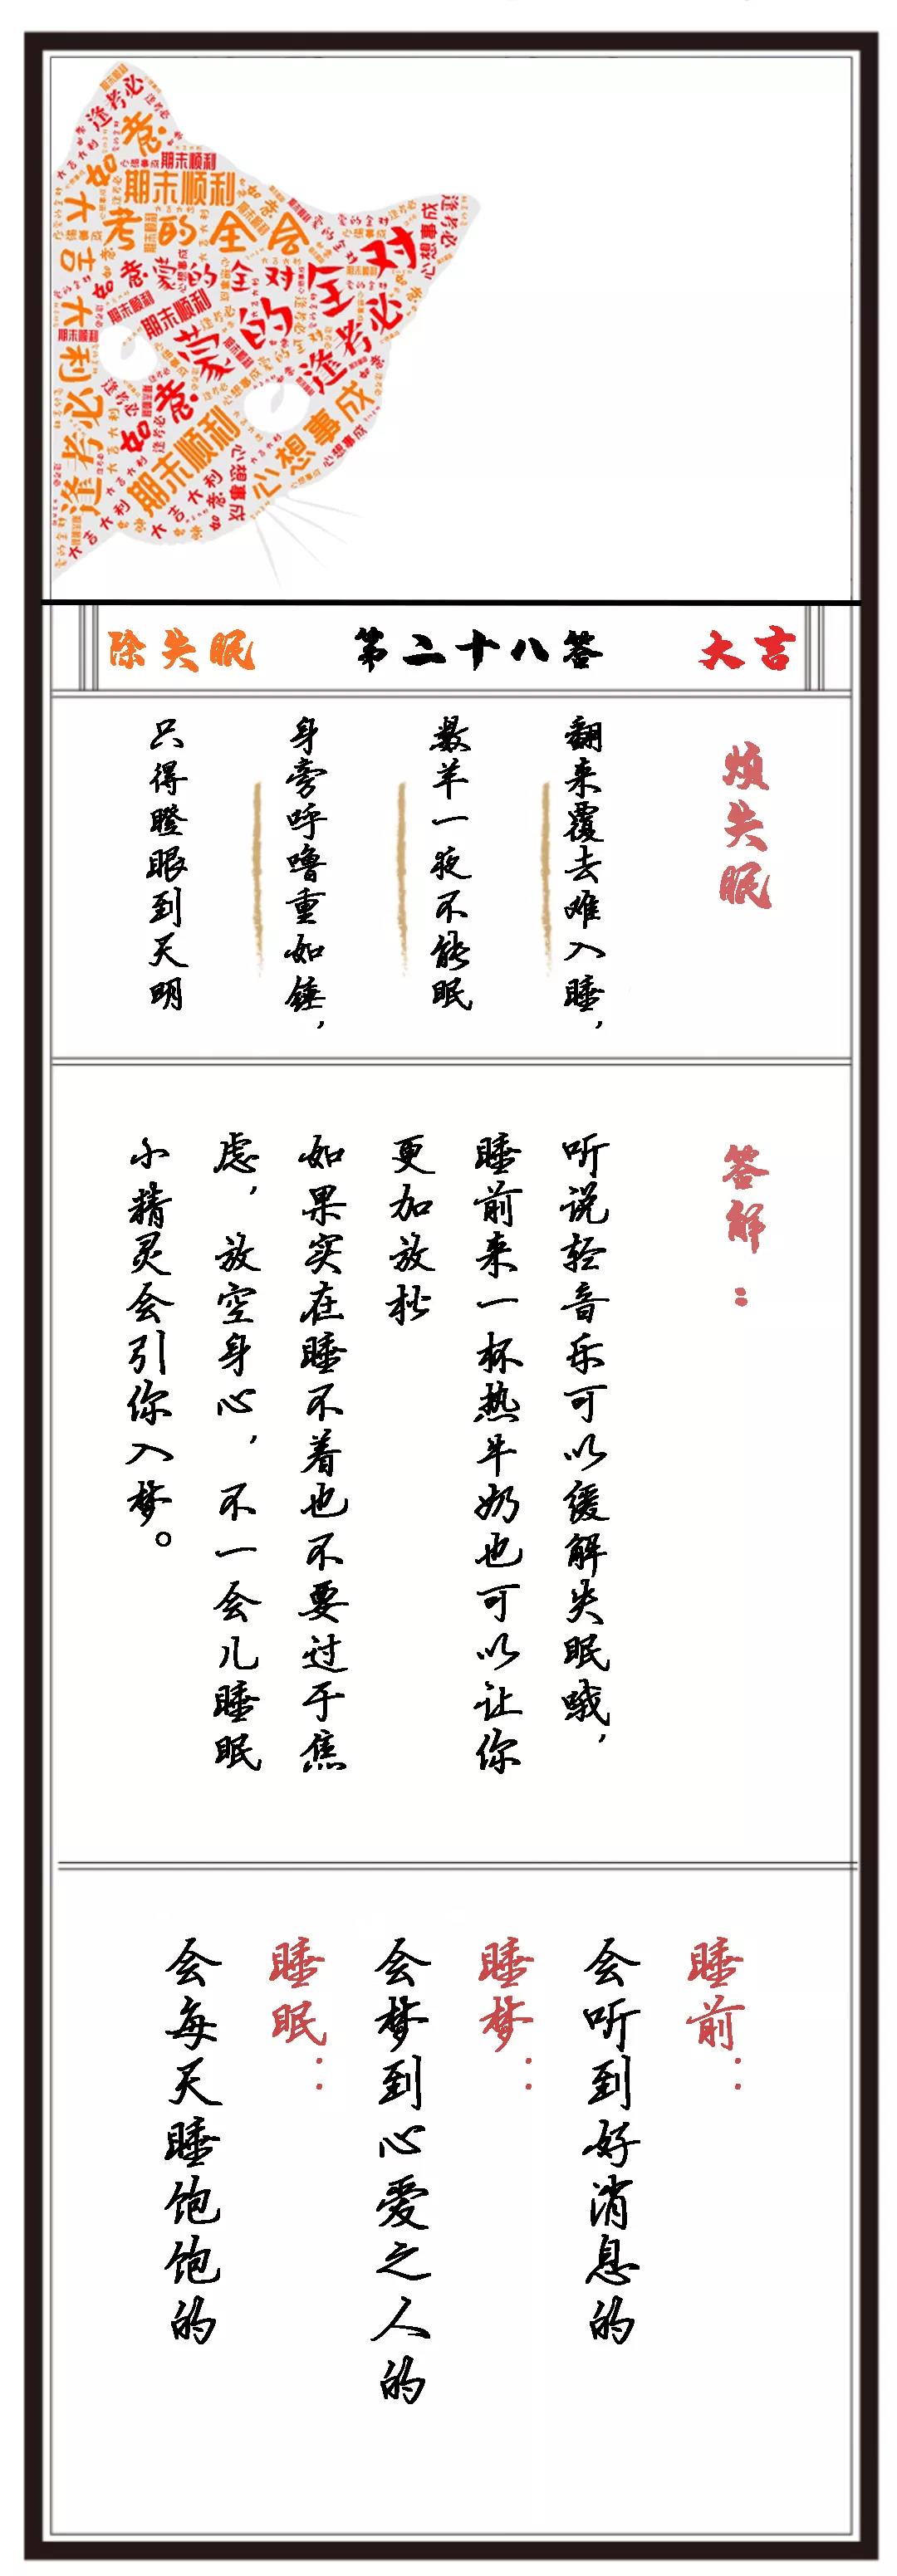 逢考必
如意
期末顺利
期末顺利
考的全会
大吉大利
如意
蒙的全对
蒙的全对
期末顺利
期末顺利
逢考必
逢考必
如意
心想事成
心想事成
期末顺利
心想事成
大吉大利
除失眠 第二十八答 大吉
烦失眠
翻来覆去难入睡，
数羊一夜不能眠
身旁呼噜重如锤，
只得瞪眼到天明
答解：
听说轻音乐可以缓解失眠哦，
睡前来一杯热牛奶也可以让你
更加放松
如果实在睡不着也不要过于焦
虑，放空身心，不一会儿睡眠
小精灵会引你入梦。
睡前：
会听到好消息的
睡梦：
会梦到心爱之人的
睡眠：
会每天睡饱饱的